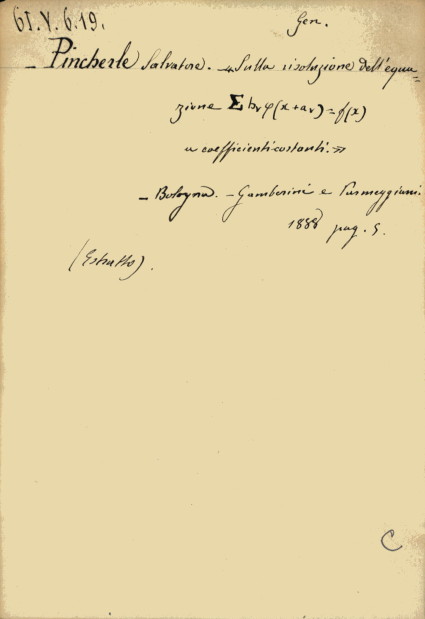 61.V.6.19.
Gen.
— Pincherle Salvatore. — «Sulla risoluzione dell'equa=
zione Σ hᵥ φ(x+aᵥ)=f(x)
a coefficienti costanti.»
— Bologna. — Gamberini e Parmeggiani.
1888 pag. 5.
(Estratto).
C